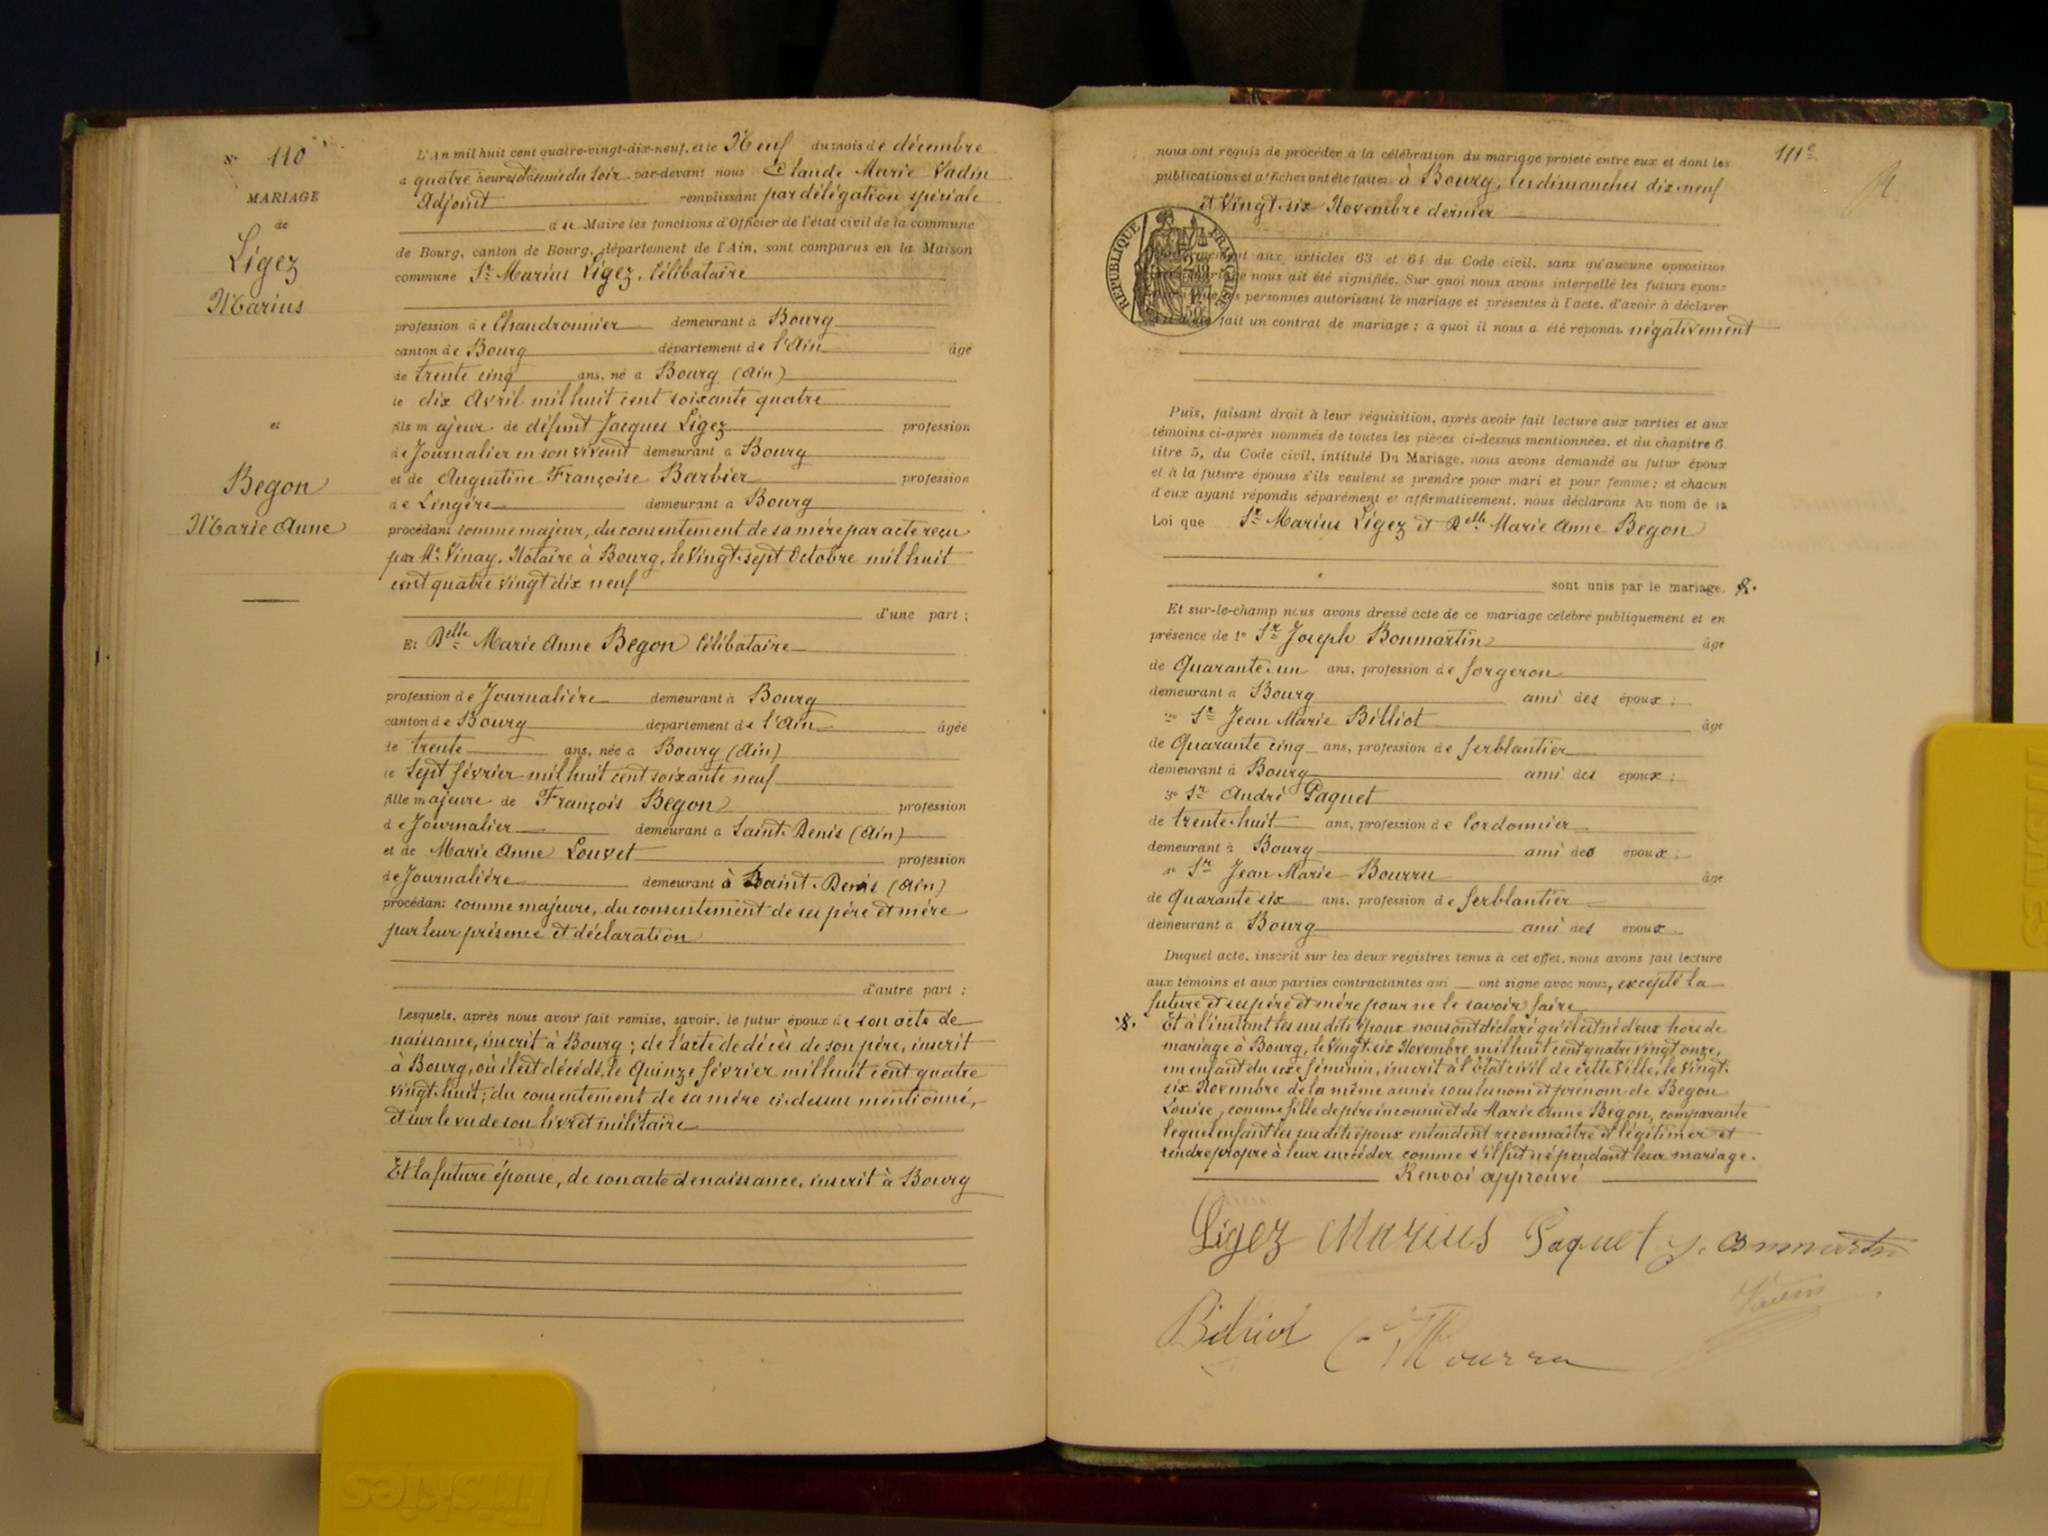 N° 110
MARIAGE
de
Ligez
Marius
et
Begon
Marie Anne
L'An mil huit cent quatre-vingt-dix-neuf, et le Neuf du mois de décembre
a quatre heures et demie du soir par-devant nous Claude Marie Vadin
Adjoint remplissant par délégation spéciale
du Maire les fonctions d'Officier de l'état civil de la commune
de Bourg, canton de Bourg, département de l'Ain, sont comparus en la Maison
commune Sr Marius Ligez, Célibataire
profession de Chaudronnier demeurant à Bourg
canton de Bourg département de l'Ain âgé
de trente cinq ans, né à Bourg (Ain)
le dix Avril mil huit cent soixante quatre
fils majeur de défunt Jacques Ligez profession
de Journalier en son vivant demeurant à Bourg
et de Augustine Françoise Barbier profession
de Lingère demeurant à Bourg
procédant comme majeur, du consentement de sa mère par acte reçu
par Me Vinay, Notaire à Bourg, le Vingt-sept Octobre mil huit
cent quatre vingt dix neuf
d'une part ;
Et Delle Marie Anne Begon Célibataire
profession de Journalière demeurant à Bourg
canton de Bourg département de l'Ain âgée
de trente ans, née à Bourg (Ain)
le Sept février mil huit cent soixante neuf
fille majeure de François Begon profession
de Journalier demeurant à Saint-Denis (Ain)
et de Marie Anne Louvet profession
de Journalière demeurant à Saint-Denis (Ain)
procédant comme majeure, du consentement de ses père et mère
par leur présence et déclaration
d'autre part ;
Lesquels, après nous avoir fait remise, savoir, le futur époux de son acte de
naissance, inscrit à Bourg ; de l'acte de décès de son père, inscrit
à Bourg, où il est décédé le Quinze février mil huit cent quatre
vingt-huit ; du consentement de sa mère ci-dessus mentionné,
et sur le vu de son livret militaire
Et la future épouse, de son acte de naissance, inscrit à Bourg
111e
nous ont requis de procéder à la célébration du mariage projeté entre eux et dont les
publications et affiches ont été faites à Bourg, les dimanches dix-neuf
et Vingt-six Novembre dernier
RÉPUBLIQUE FRANÇAISE
aux articles 63 et 64 du Code civil, sans qu'aucune opposition
nous ait été signifiée. Sur quoi nous avons interpellé les futurs époux
personnes autorisant le mariage et présentes à l'acte, d'avoir à déclarer
fait un contrat de mariage ; à quoi il nous a été répondu négativement
Puis, faisant droit à leur réquisition, après avoir fait lecture aux parties et aux
témoins ci-après nommés de toutes les pièces ci-dessus mentionnées, et du chapitre 6
titre 5, du Code civil, intitulé Du Mariage, nous avons demandé au futur époux
et à la future épouse s'ils veulent se prendre pour mari et pour femme ; et chacun
d'eux ayant répondu séparément et affirmativement, nous déclarons Au nom de la
Loi que Sr Marius Ligez et Delle Marie Anne Begon
sont unis par le mariage.
Et sur-le-champ nous avons dressé acte de ce mariage célébré publiquement et en
présence de 1° Sr Joseph Bonmartin âgé
de Quarante-un ans, profession de forgeron
demeurant à Bourg ami des époux ;
2° Sr Jean Marie Billiot âgé
de Quarante cinq ans, profession de ferblantier
demeurant à Bourg ami des époux ;
3° Sr André Paquet
de trente-huit ans, profession de Cordonnier
demeurant à Bourg ami des époux ;
4° Sr Jean Marie Bourru âgé
de Quarante six ans, profession de ferblantier
demeurant à Bourg ami des époux.
Duquel acte, inscrit sur les deux registres tenus à cet effet, nous avons fait lecture
aux témoins et aux parties contractantes qui ont signé avec nous, excepté la
future et ses père et mère pour ne le savoir faire
Et à l'instant les susdits époux nous ont déclaré qu'il est né d'eux hors de
mariage à Bourg, le Vingt-six Novembre mil huit cent quatre vingt onze,
un enfant du sexe féminin, inscrit à l'État civil de cette Ville, le Vingt-
six Novembre de la même année sous les nom et prénom de Begon
Louise, comme fille de père inconnu et de Marie Anne Begon, comparante
lequel enfant les susdits époux entendent reconnaître et légitimer et
rendre propre à leur succéder comme s'il fut né pendant leur mariage.
Renvoi approuvé
Ligez Marius Paquet
Vadin